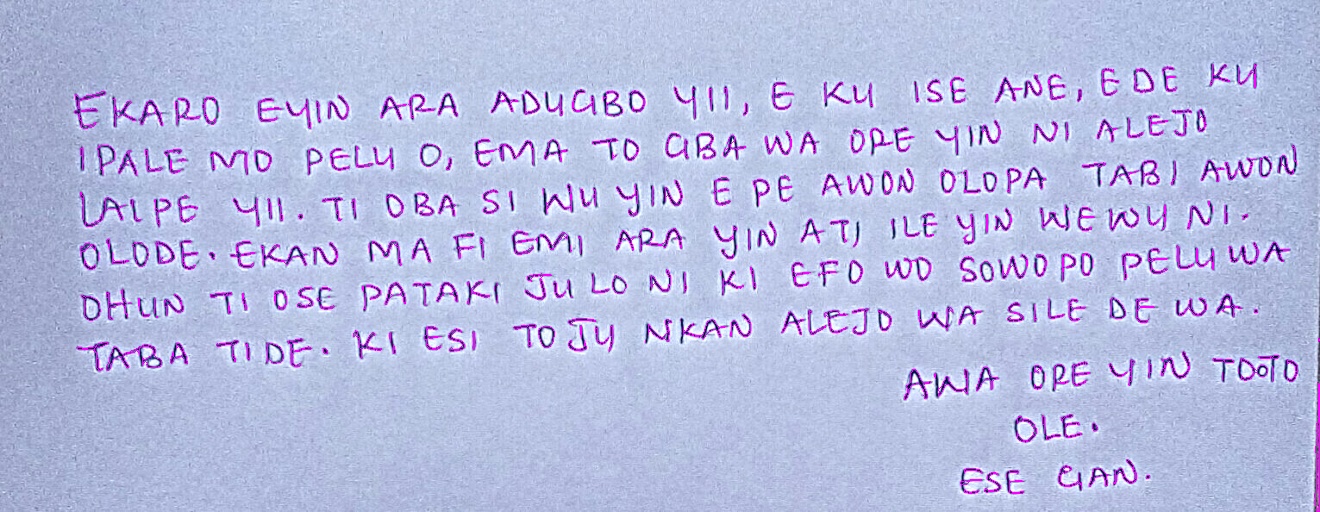 EKARO EYIN ARA ADUGBO YII, E KU ISE ANE, E DE KU
IPALE MO PELU O, EMA TO GBA WA ORE YIN NI ALEJO
LAIPE YII. TI OBA SI WU YIN E PE AWON OLOPA TABI AWON
OLODE. EKAN MA FI EMI ARA YIN ATI ILE YIN WEWU NI.
OHUN TI OSE PATAKI JU LO NI KI EFO WO SOWO PO PELU WA
TABA TI DE. KI ESI TO JU NKAN ALEJO WA SILE DE WA.
AWA ORE YIN TOOTO
OLE.
ESE GAN.